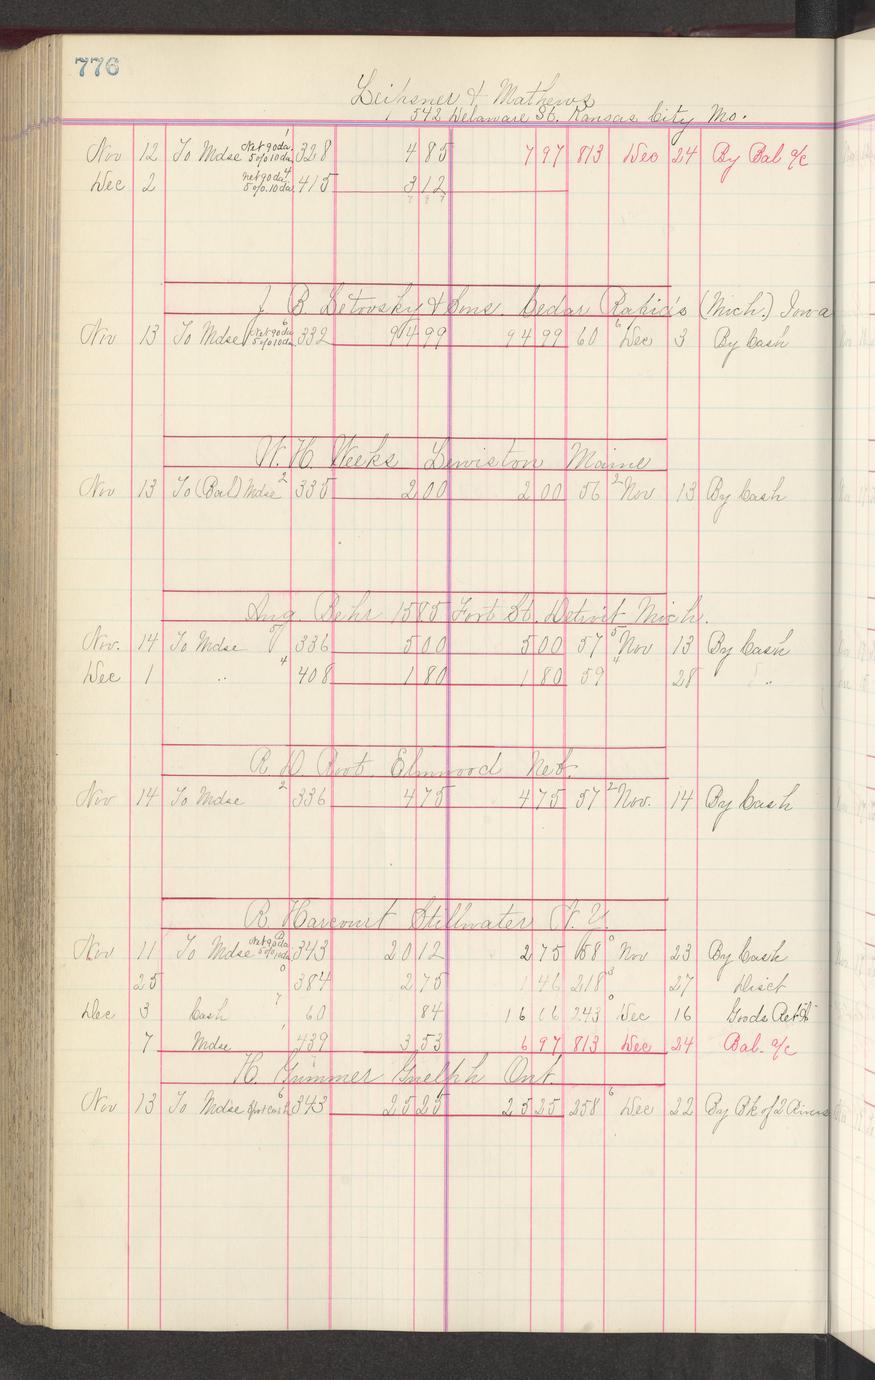 776
& Mathews
542 Delaware St. Kansas City Mo.
Nov 12 To Mdse Net 90 da. 5% 10 da 1 328 4 85 7 97 813 Dec 24 By Bal a/c
Dec 2 net 90 da 5% 10 da 4 415 3 12
7 97
J B Letovsky & Sons. Cedar Rapids (Mich.) Iowa
Nov 13 To Mdse Net 90 da 5% 10 da 6 332 94 99 94 99 60 6 Dec 3 By Cash
W. H. Weeks Lewiston Maine
Nov 13 To (Bal) Mdse 2 335 2 00 2 00 56 2 Nov 13 By Cash
Aug. Behr 1585 Fort St. Detroit Mich.
Nov. 14 To Mdse 5 336 5 00 5 00 57 5 Nov 13 By Cash
Dec 1 " 4 408 1 80 1 80 59 4 28 "
R D Root. Elmwood Neb.
Nov 14 To Mdse 2 336 4 75 4 75 57 2 Nov. 14 By Cash
R. Harcourt Stillwater N. Y.
Nov 11 To Mdse Net 90 da 5% 10 da 343 20 12 2 75 58 0 Nov 23 By Cash
25 0 384 2 75 1 46 218 3 27 Disct
Dec 3 Cash 7 60 84 16 66 243 0 Dec 16 Goods Ret'd
7 Mdse 1 439 3 53 6 97 813 Dec 24 Bal. a/c
H. Gummer Guelph Ont.
Nov 13 To Mdse 6 343 25 25 25 25 258 6 Dec 22 By Bk of 2 Rivers